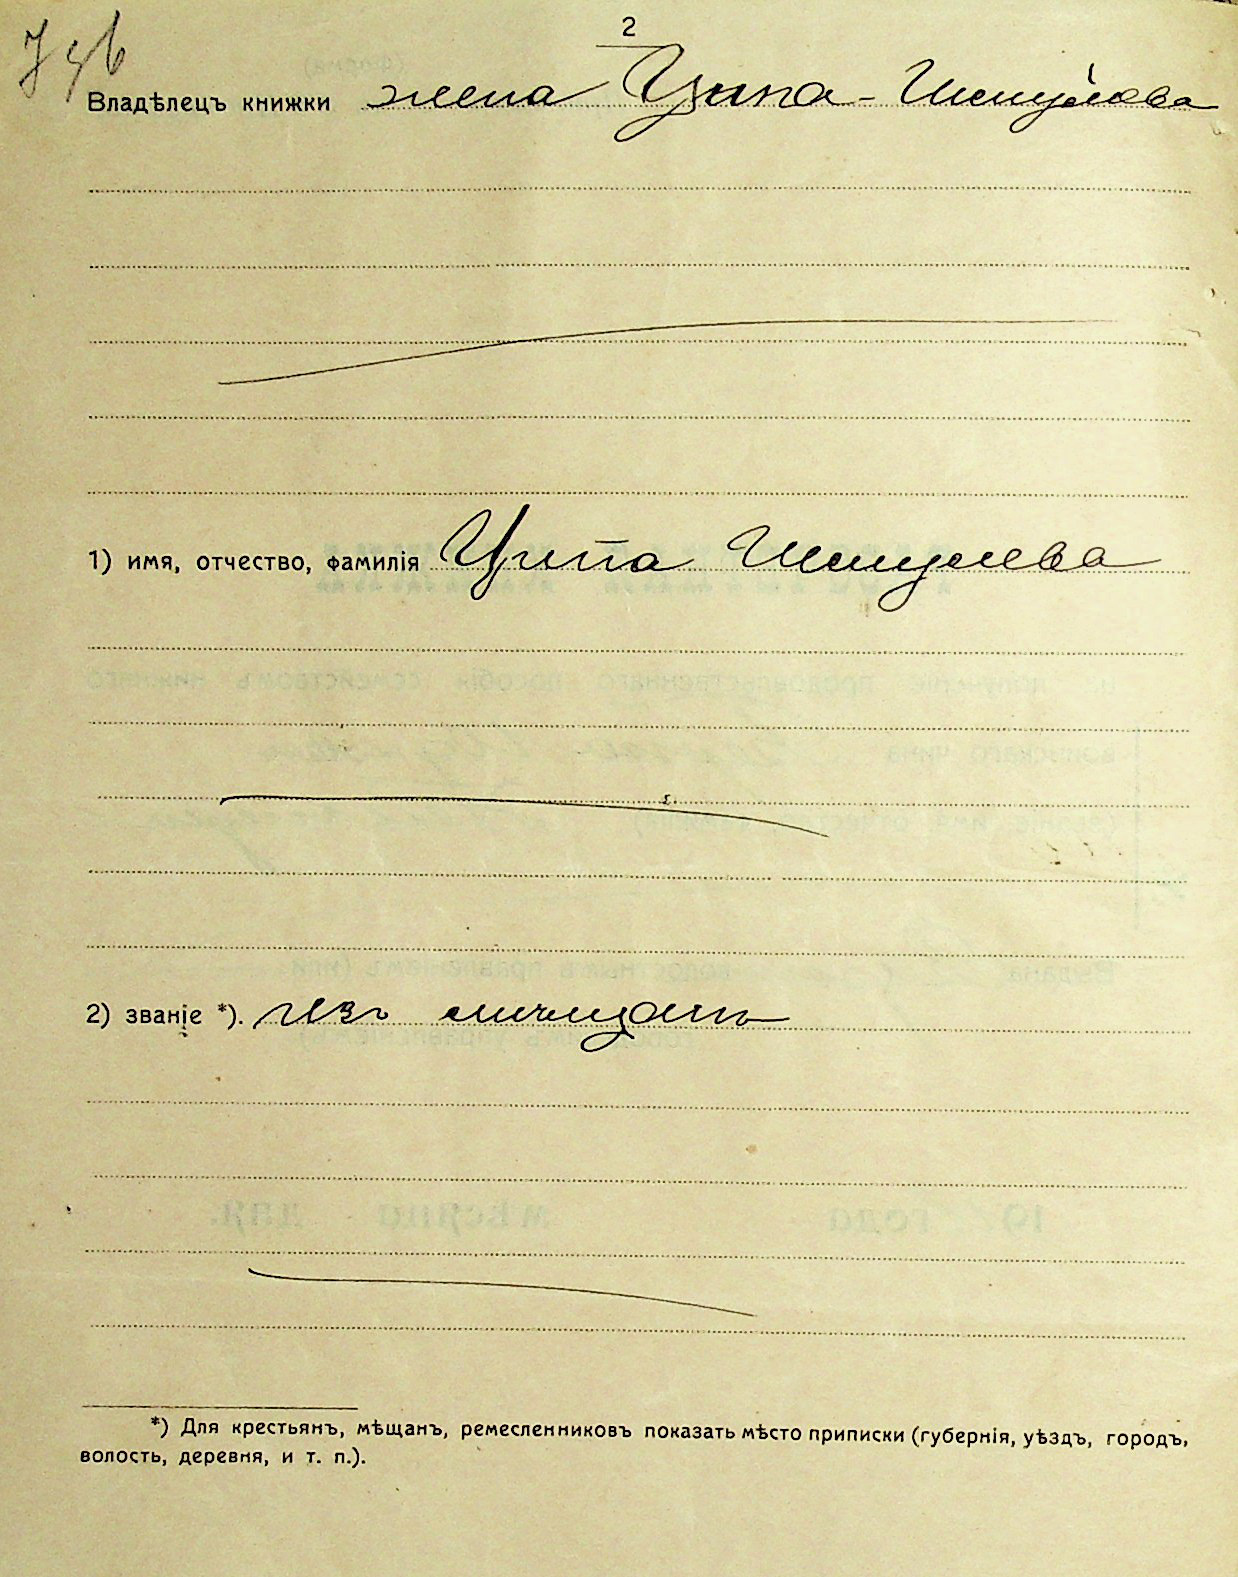 2
Владѣлецъ книжки жена Ципа - Шмулева
1) имя, отчество, фамилія Ципа Шмулева
2) званіе *). изъ мѣщанъ
*) Для крестьянъ, мѣщанъ, ремесленниковъ показать мѣсто приписки (губернія, уѣздъ, городъ,
волость, деревня, и т. п.).